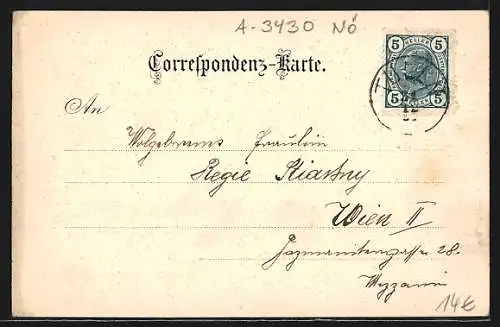 A-3430 NÖ
5 HELLER 5
Correspondenz-Karte.
5 5
An
Wolgeborns Fräulein
Regie Kiastny
Wien II
Pazmanitengasse 28.
Mezzanin
14€